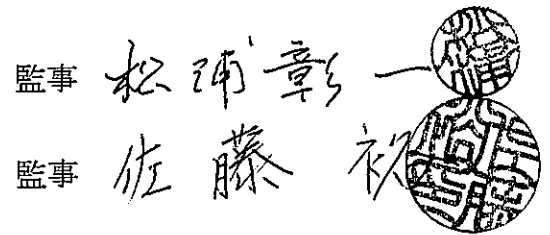 監事 松浦彰一
監事 佐藤